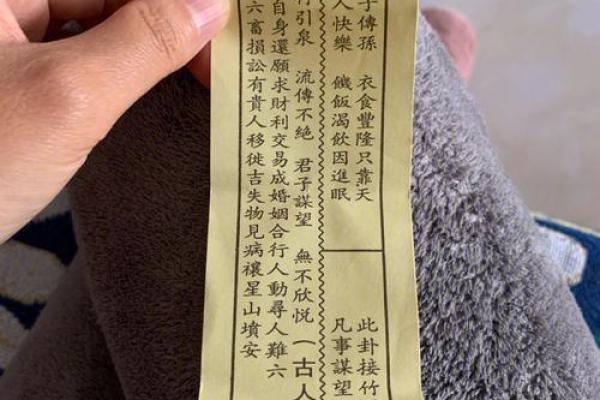 子傳孫　衣食豐隆只靠天
人快樂　饑飯渴飲因進眠
此卦接竹
凡事謀望
引泉　流傳不絕　君子謀望　無不欣悅　古人
自身還願求財利交易成婚姻合行人動尋人難六
六畜損訟有貴人移徙吉失物見病禳星山墳安